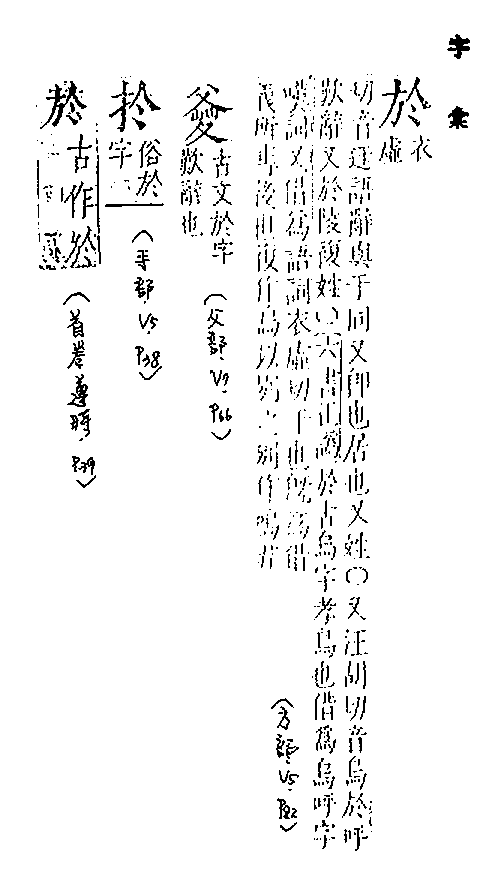 字彙
於衣虛
切音迂語辭與于同又即也居也又姓〇又汪胡切音烏於呼
歎辭又於陵複姓〇六書正譌於古烏字孝烏也借爲烏呼字
嘆詞又借爲語詞衣虛切于也既爲借
義所專後世復作烏以別之別作嗚
(方部 V5 P22)
古文於字
歎辭也
(父部 V7 P66)
扵俗於
字
(手部 V5 P38)
於古作
(首卷遵時 P29)